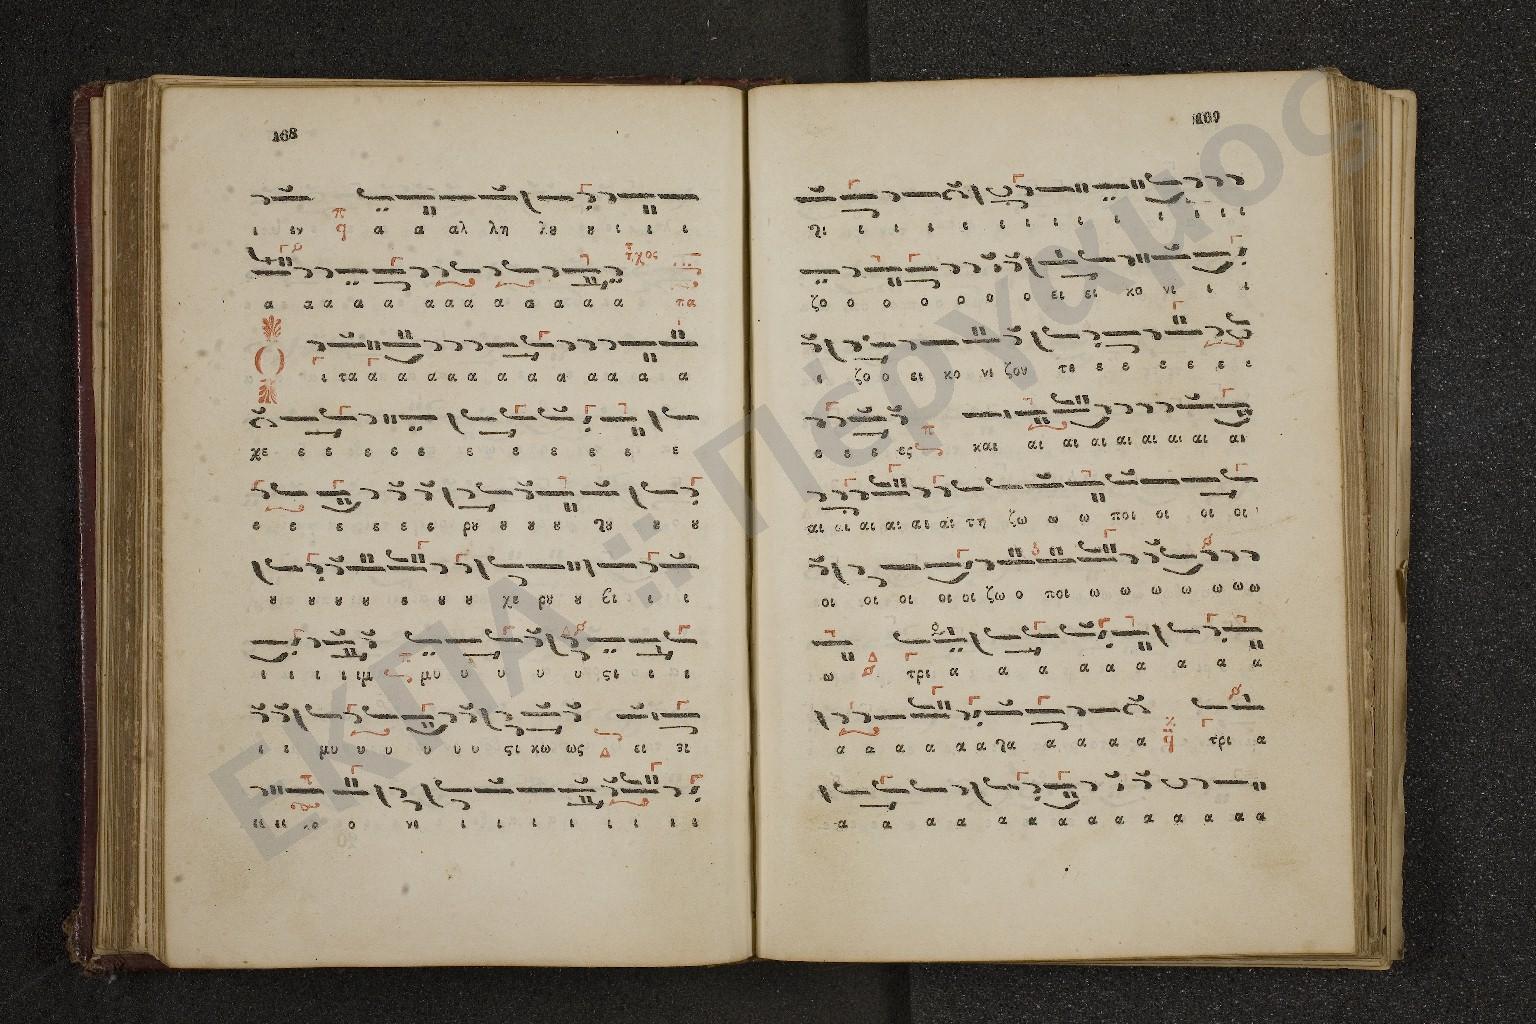 168
ι ιν α α αλ λη λȣ ȣ ι ι ι
ἦχος
α α α α α α α α α α α α α πα
Ο ι τα α α α α α α α α α α α
χε ε ε ε ε ε ε ε ε ε ε ε ε
ε ε ε ε ε ε ε ρȣ ȣ ȣ ȣ ȣ ȣ
ȣ ȣ ȣ ȣ ȣ ȣ ȣ χε ρȣ ȣ βι ι ι
ι ι ι ι ιμ μυ υ υ υ υ ςι ι ι
ι ι μυ υ υ υ υ υ ςι κω ως ει ει
ο νι ι ι ι ι ι ι ι ι
169
ι ι ι ι ι ι ι ι ι ι ι ι
ζο ο ο ο ο ο ο ο ει ει κο νι ι ι
ι ζο ο ει κο νι ζον τε ε ε ε ε ε ε
ε ε ε ες και αι αι αι αι αι αι αι αι
αι αι αι αι αι αι τη ζω ω ω ποι οι οι οι
οι οι οι οι οι ζω ο ποι ω ω ω ω ω ω ω
ω τρι α α α α α α α α α
α α α α α α α α α α α τρι α
α α α α α α α α α α α α α α
ΕΚΠΑ :: Πέργαμος